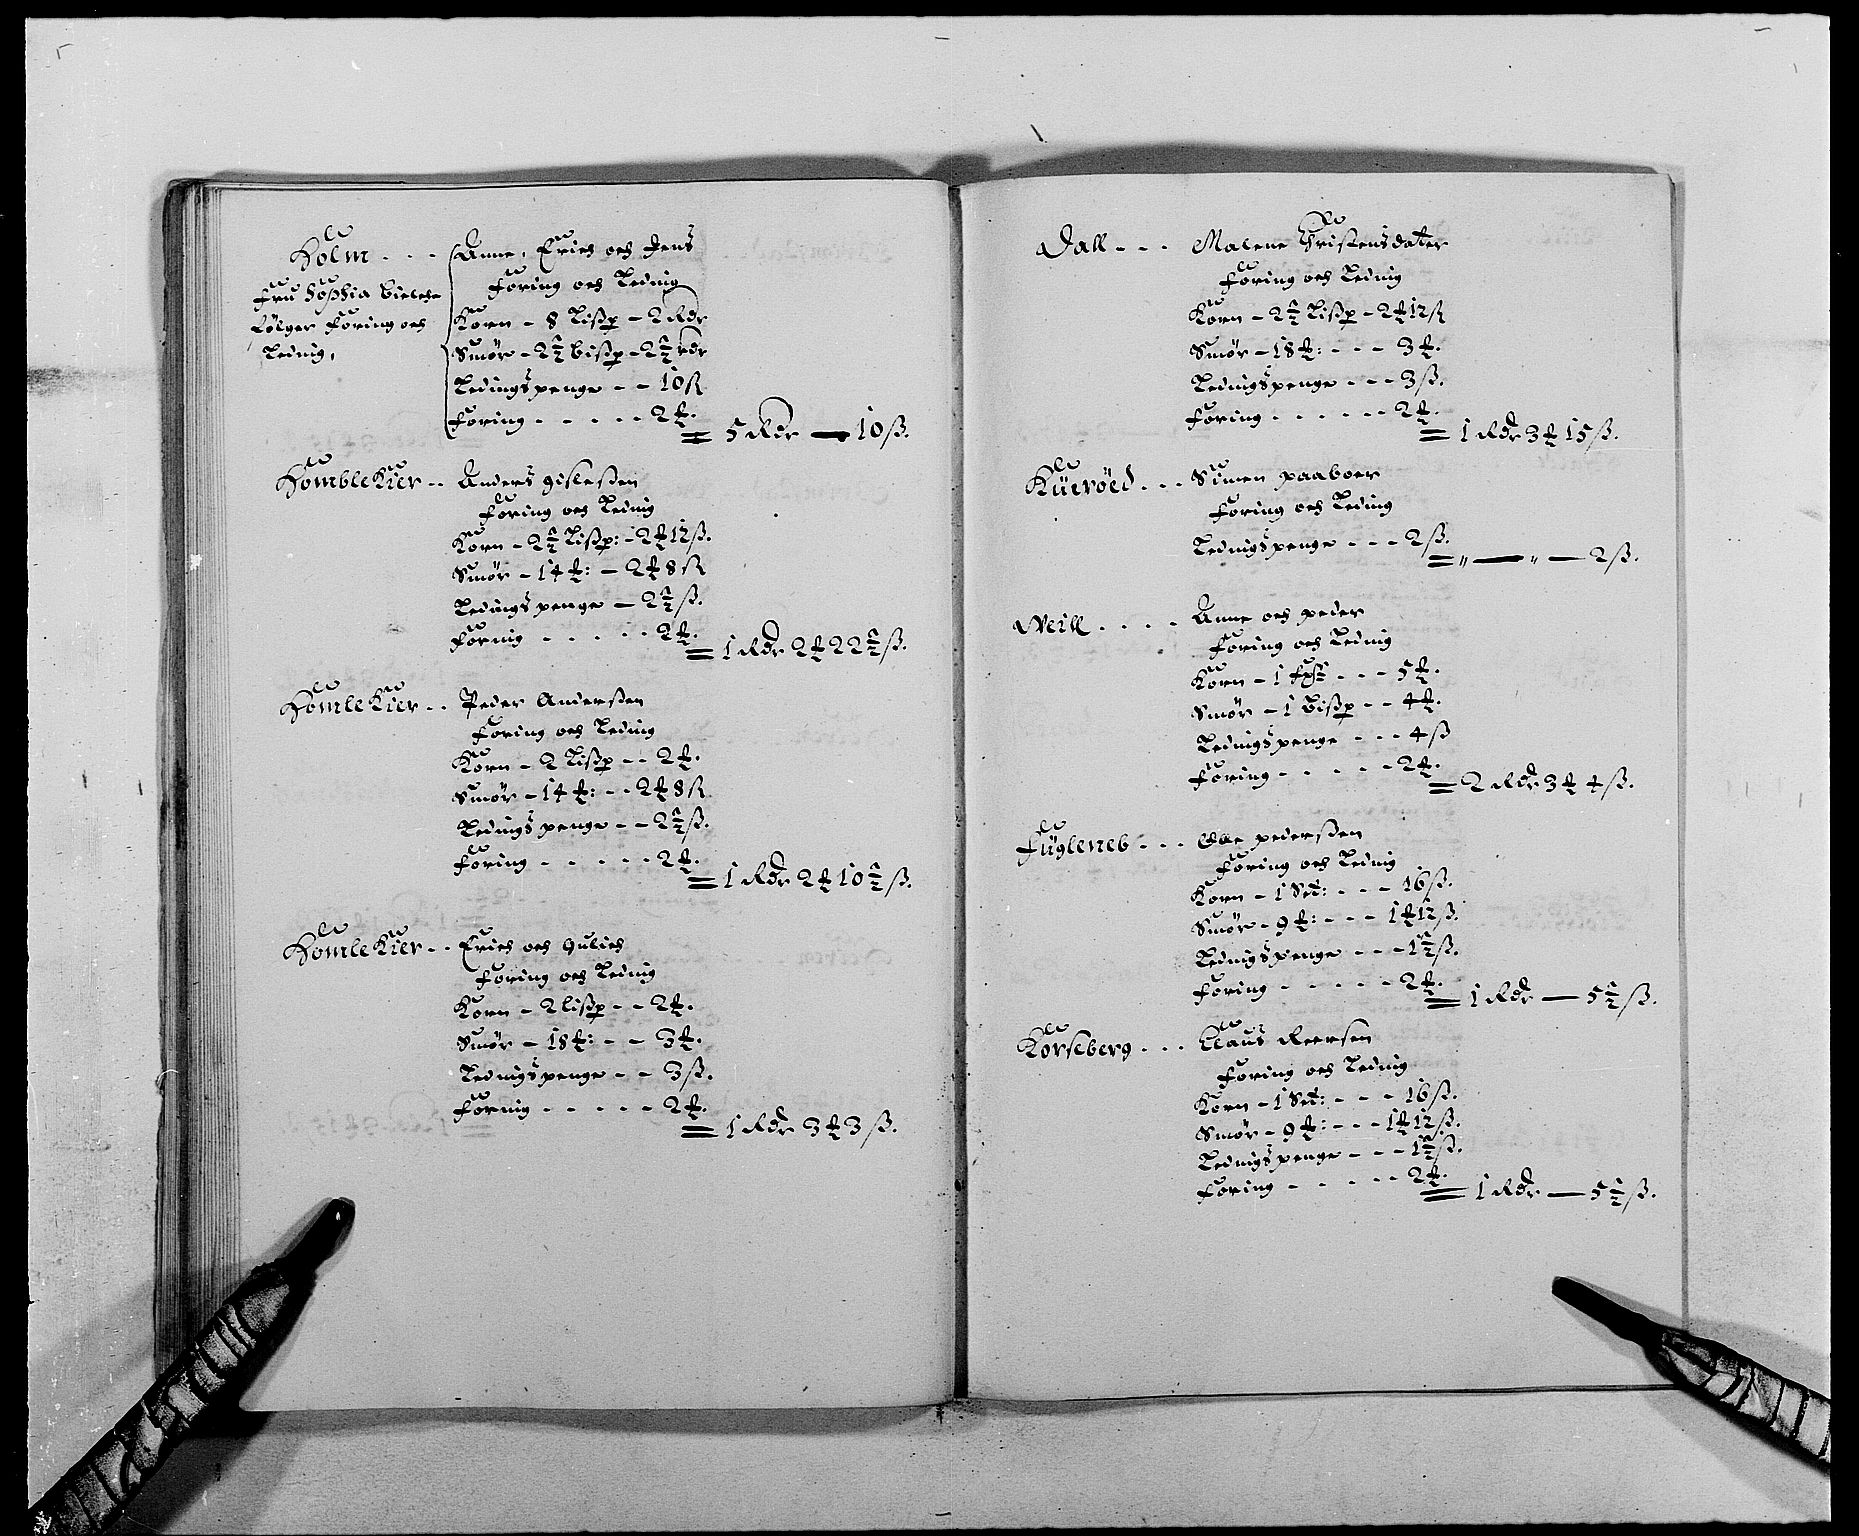 Holm - - - Anne, Erich och Jens
Fru Sophia Bielche
følger Foring och
Leding,
Foring och Leding
Korn - 8 Lißp - 2 Rdr
Smør - 2½ bißp - 2½ rdr
Ledingspenge - - 10 ß
Foring - - - - - 2 ₰.
= 5 Rdr — 10 ß.
HombleKier - - Anders gislesßen
Foring och Leding
Korn - 2½ Lißp: - 2 ₰ 12 ß.
Smør - 14 ₰: - 2 ₰ 8 ß
Ledingspenge - 2½ ß.
Foring - - - - - 2 ₰.
= 1 Rdr 2 ₰ 22½ ß.
HomleKier - - Peder Anderßen
Foring och Leding
Korn - 2 Lißp - - 2 ₰.
Smør - 14 ₰: - - 2 ₰ 8 ß
Ledingspenge - - 2½ ß.
Foring - - - - - 2 ₰.
= 1 Rdr 2 ₰ 10½ ß.
HomleKier - - Erich och Gulich
Foring och Leding
Korn - 2 lißp - - 2 ₰.
Smør - 18 ₰: - - 3 ₰.
Ledingspenge - - 3 ß.
Foring - - - - - 2 ₰.
= 1 Rdr 3 ₰ 3 ß.
Dall - - - Malene Christensdater
Foring och Leding
Korn - 2½ Lißp - 2 ₰ 12 ß
Smør - 18 ₰: - - - 3 ₰.
Ledingspenge - - - 3 ß.
Foring - - - - - - 2 ₰.
= 1 Rdr 3 ₰ 15 ß.
Küeröed - - - Simen paaboer
Foring och Leding
Ledingspenge - - - 2 ß.
= " — " — 2 ß.
Weill - - - - Anne och peder
Foring och Leding
Korn - 1 - - - 5 ₰.
Smør - 1 Bißp - - 4 ₰.
Ledingspenge - - - 4 ß
Foring - - - - - 2 ₰.
= 2 Rdr 3 ₰ 4 ß.
Fügleneb - - - Olle pederßen
Foring och Leding
Korn - 1 Set: - - - 16 ß.
Smør - 9 ₰: - - - 1 ₰ 12 ß.
Ledingspenge - - - 1½ ß.
Foring - - - - - 2 ₰.
= 1 Rdr — 5½ ß.
Korseberg - - - Claus Reersen
Foring och Leding
Korn - 1 Set: - - - 16 ß.
Smør - 9 ₰: - - - 1 ₰ 12 ß.
Ledingspenge - - - 1½ ß.
Foring - - - - - 2 ₰.
= 1 Rdr — 5½ ß.